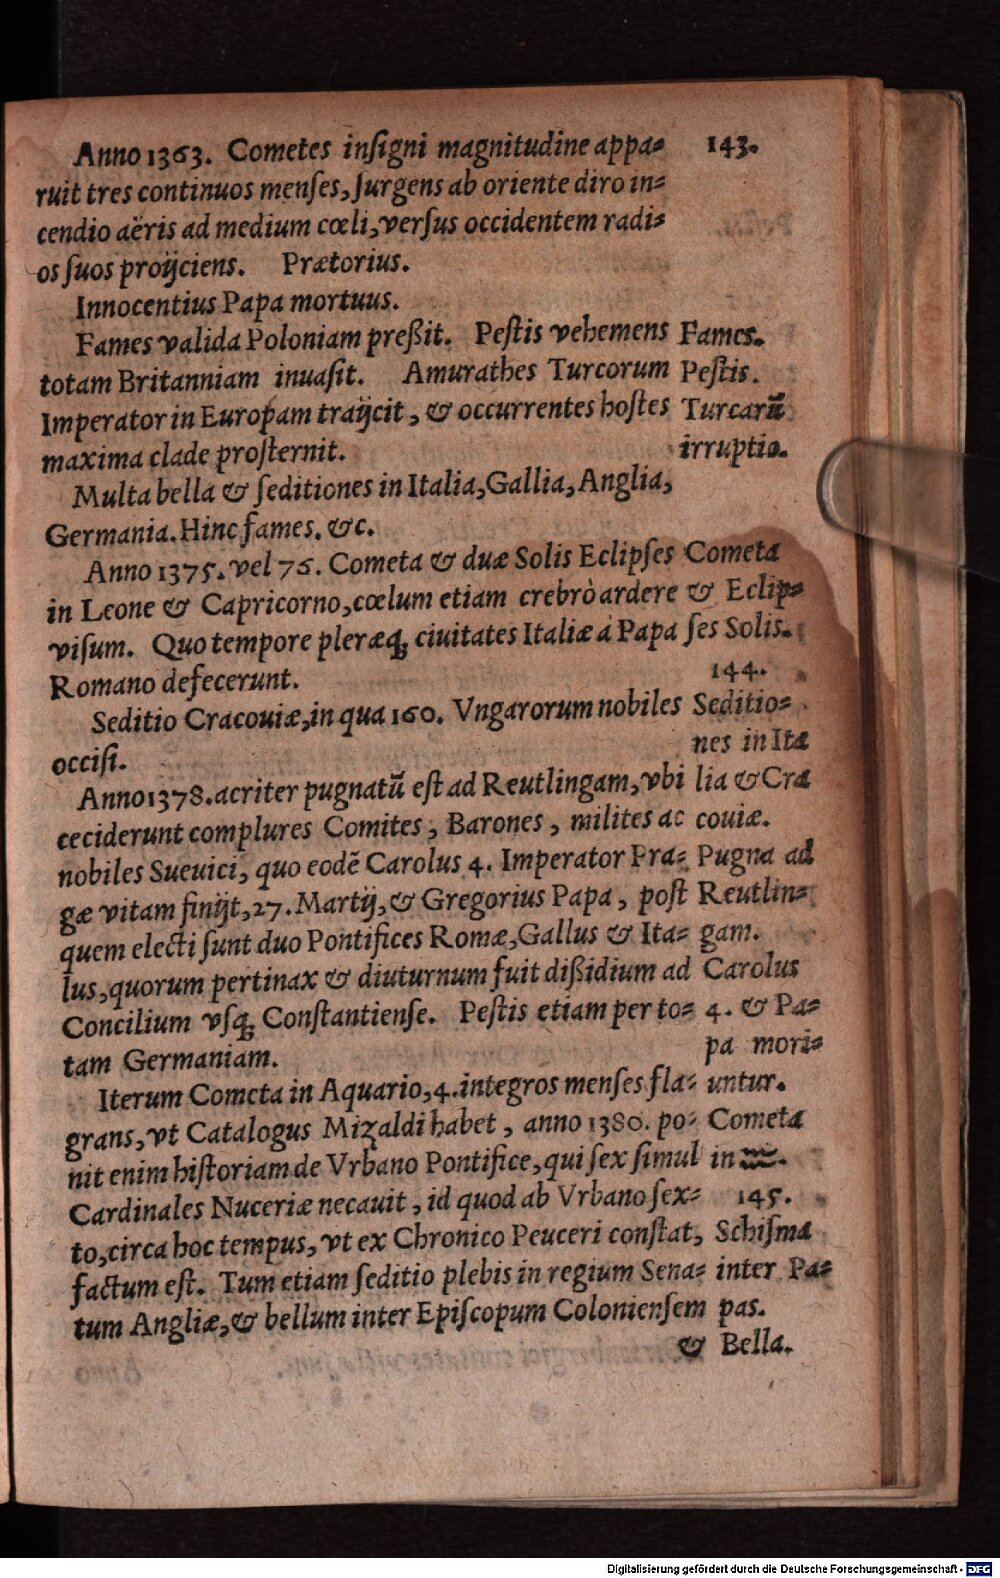 Anno 1363. Cometes insigni magnitudine appa=
ruit tres continuos menses, surgens ab oriente diro in=
cendio aëris ad medium cœli, versus occidentem radi=
os suos proijciens. Prætorius.
Innocentius Papa mortuus.
Fames valida Poloniam preßit. Pestis vehemens
totam Britanniam inuasit. Amurathes Turcorum
Imperator in Europam traijcit, & occurrentes hostes
maxima clade prosternit.
Multa bella & seditiones in Italia, Gallia, Anglia,
Germania. Hinc fames. &c.
Anno 1375. vel 76. Cometa & duæ Solis Eclipses
in Leone & Capricorno, cœlum etiam crebrò ardere
visum. Quo tempore pleræq; ciuitates Italiæ á Papa
Romano defecerunt.
Seditio Cracouiæ, in qua 160. Vngarorum nobiles
occisi.
Anno 1378. acriter pugnatũ est ad Reutlingam, vbi
ceciderunt complures Comites, Barones, milites ac
nobiles Sueuici, quo eodẽ Carolus 4. Imperator Pra=
gæ vitam finijt, 27. Martij, & Gregorius Papa, post
quem electi sunt duo Pontifices Romæ, Gallus & Ita=
lus, quorum pertinax & diuturnum fuit dißidium ad
Concilium vsq; Constantiense. Pestis etiam per to=
tam Germaniam.
Iterum Cometa in Aquario, 4. integros menses fla=
grans, vt Catalogus Mizaldi habet, anno 1380. po=
nit enim historiam de Vrbano Pontifice, qui sex simul
Cardinales Nuceriæ necauit, id quod ab Vrbano sex=
to, circa hoc tempus, vt ex Chronico Peuceri constat,
factum est. Tum etiam seditio plebis in regium Sena=
tum Angliæ, & bellum inter Episcopum Coloniensem
&
143.
Fames.
Pestis.
Turcarũ
irruptio.
Cometa
& Eclip=
ses Solis.
144.
Seditio=
nes in Ita
lia & Cra
couiæ.
Pugna ad
Reutlin=
gam.
Carolus
4. & Pa=
pa mori=
untur.
Cometa
in ♒.
145.
Schisma
inter Pa=
pas.
Bella.
Digitalisierung gefördert durch die Deutsche Forschungsgemeinschaft - DFG